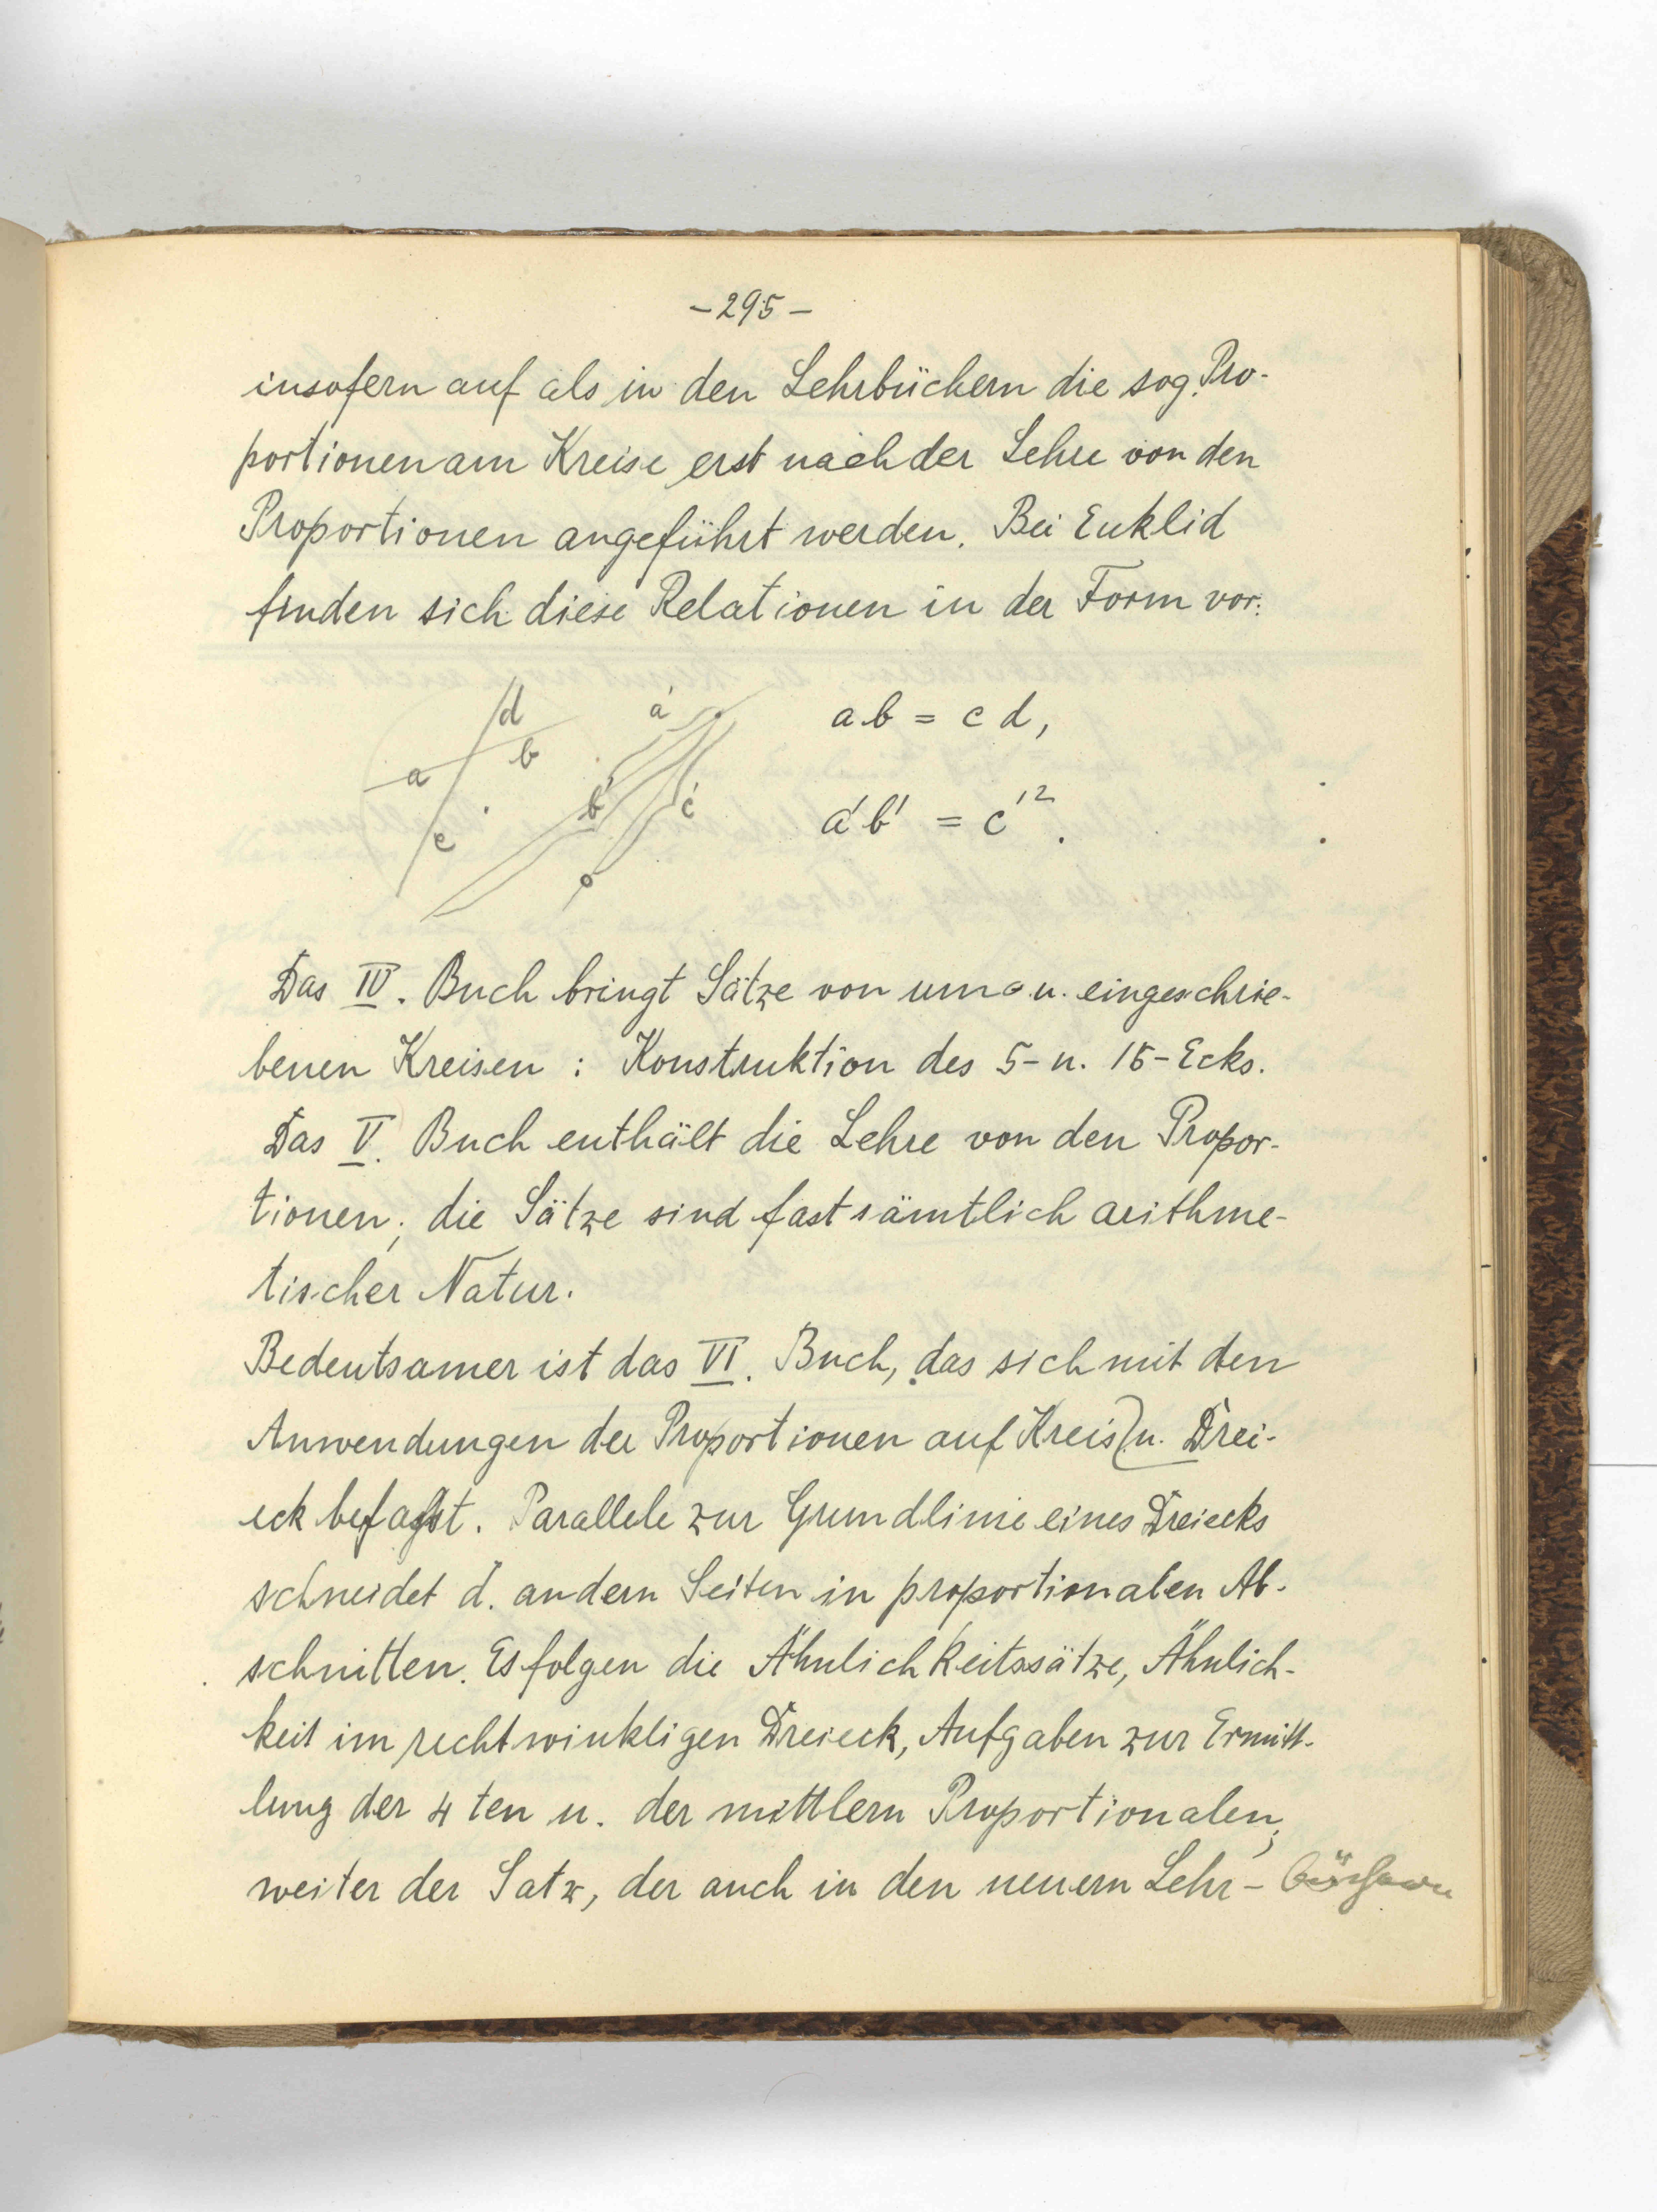 -295-
insofern auf als in den Lehrbüchern die sog. Pro-
portionen am Kreise erst nach der Lehre von den
Proportionen angeführt werden. Bei Euklid
finden sich diese Relationen in der Form vor:
d a' ab = cd,
a b
b' c' a'b' = c'².
c
Das IV. Buch bringt Sätze von um- u. eingeschrie-
benen Kreisen : Konstruktion des 5- u. 15-Ecks.
Das V. Buch enthält die Lehre von den Propor-
tionen; die Sätze sind fast sämtlich arithme-
tischer Natur.
Bedeutsamer ist das VI. Buch, das sich mit den
Anwendungen der Proportionen auf Kreis u. Drei-
eck befaßt. Parallele zur Grundlinie eines Dreiecks
schneidet d. andern Seiten in proportionalen Ab-
schnitten. Es folgen die Ähnlichkeitssätze, Ähnlich-
keit im rechtwinkligen Dreieck, Aufgaben zur Ermitt-
lung der 4ten u. der mittlern Proportionalen,
weiter der Satz, der auch in den neuern Lehr- büchern